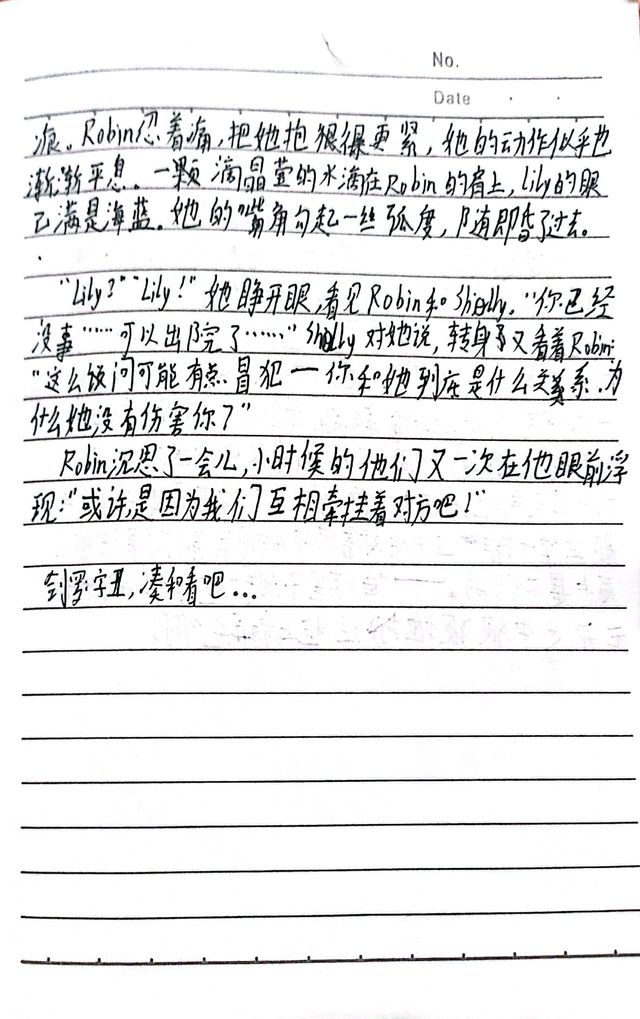 No.
Date
痕。Robin忍着痛，把她抱得更紧，她的动作似乎也
渐渐平息。一颗滴晶莹的水滴在Robin的肩上，Lily的眼
已满是海蓝。她的嘴角勾起一丝弧度，随即昏了过去。
“Lily？”“Lily！”她睁开眼，看见Robin和Shielly。“你已经
没事……可以出院了……”Shielly对她说，转身又看着Robin：
“这么饭问可能有点冒犯——你和她到底是什么关系，为
什么她没有伤害你？”
Robin沉思了一会儿，小时候的他们又一次在他眼前浮
现：“或许是因为我们互相牵挂着对方吧！”
字丑，凑和看吧...